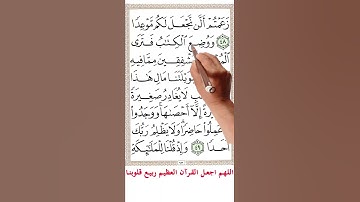 زَعَمْتُمْ أَلَّن نَّجْعَلَ لَكُم مَّوْعِدًا
٤٨ وَوُضِعَ ٱلْكِتَٰبُ فَتَرَى
مُشْفِقِينَ مِمَّا فِيهِ
يَٰوَيْلَتَنَا مَالِ هَٰذَا
لَا يُغَادِرُ صَغِيرَةً
إِلَّآ أَحْصَىٰهَا وَوَجَدُوا۟
عَمِلُوا۟ حَاضِرًا وَلَا يَظْلِمُ رَبُّكَ
أَحَدًا ٤٩ وَإِذْ قُلْنَا لِلْمَلَٰٓئِكَةِ
اللهم اجعل القرآن العظيم ربيع قلوبنا